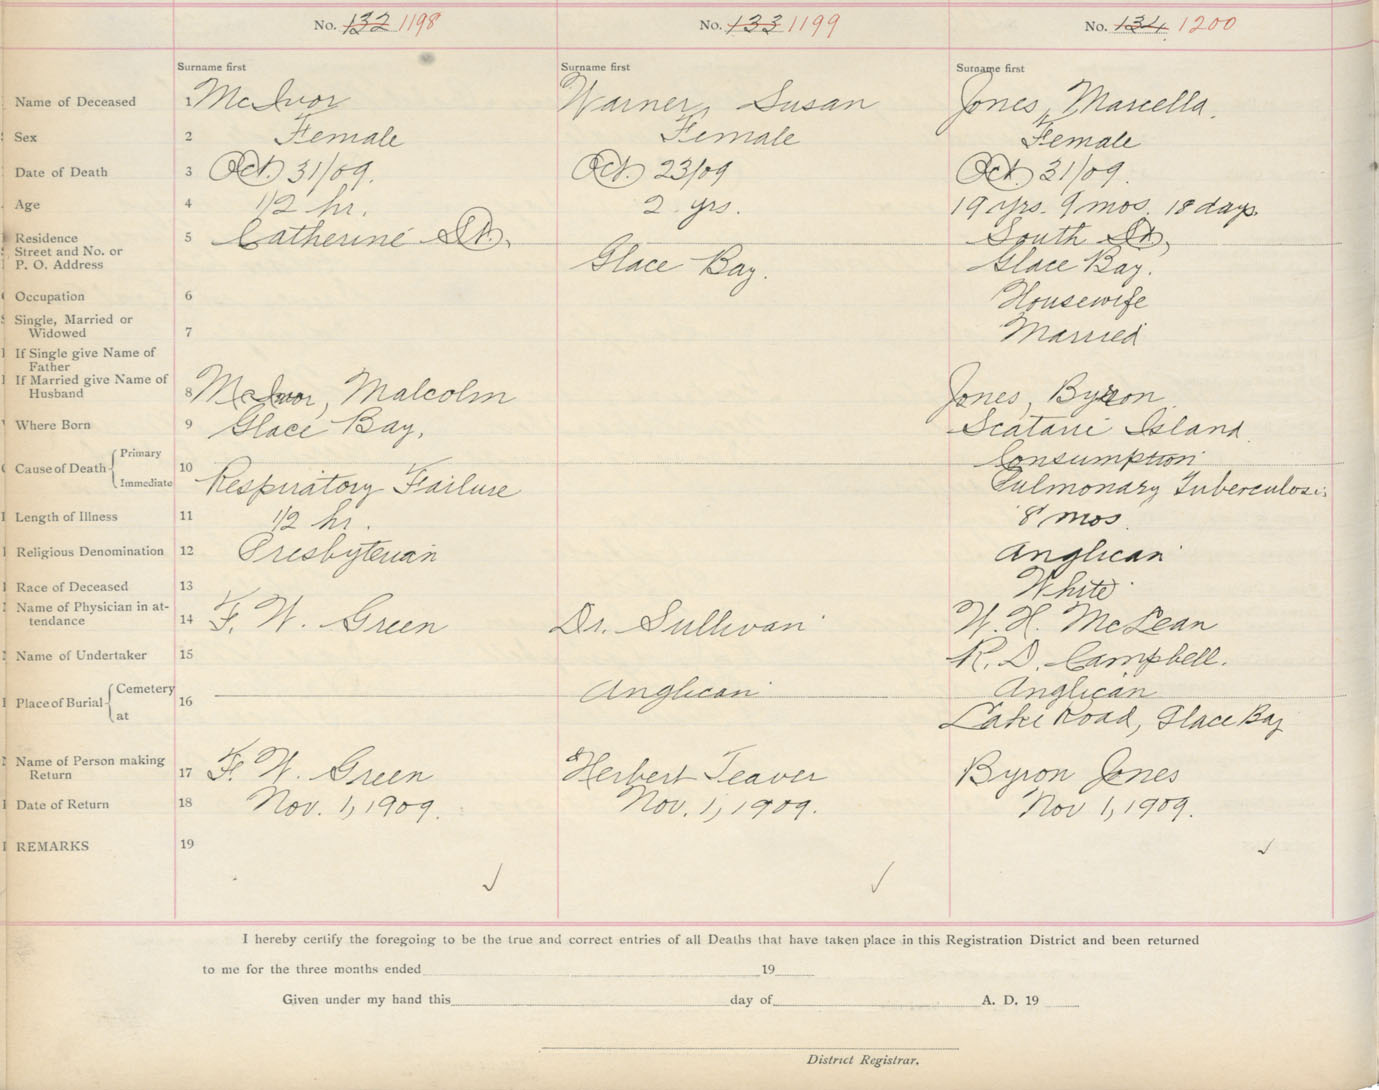 No. 132 1198 No. 133 1199 No. 134 1200
Surname first Surname first Surname first
Name of Deceased 1 McIvor Warner, Susan Jones, Marcella.
Sex 2 Female Female Female
Date of Death 3 Oct. 31/09. Oct. 23/09 Oct. 31/09.
Age 4 1/2 hr. 2 yrs. 19 yrs. 9 mos. 18 days.
Residence 5 Catherine St. South St,
Street and No. or
P. O. Address Glace Bay. Glace Bay.
Occupation 6 Housewife
Single, Married or
Widowed 7 Married
If Single give Name of
Father
If Married give Name of
Husband 8 McIvor, Malcolm Jones, Byron
Where Born 9 Glace Bay. Scatarie Island
Cause of Death Primary Consumption
10
Immediate Respiratory Failure Pulmonary Tuberculosis
Length of Illness 11 1/2 hr. 8 mos.
Religious Denomination 12 Presbyterian Anglican
Race of Deceased 13 White
Name of Physician in at-
tendance 14 F. W. Green Dr. Sullivan W. H. McLean
Name of Undertaker 15 R. D. Campbell.
Place of Burial Cemetery 16 Anglican Anglican
at Lake Road, Glace Bay
Name of Person making
Return 17 F. W. Green Herbert Teaver Byron Jones
Date of Return 18 Nov. 1, 1909. Nov. 1, 1909. Nov 1, 1909.
REMARKS 19
I hereby certify the foregoing to be the true and correct entries of all Deaths that have taken place in this Registration District and been returned
to me for the three months ended 19
Given under my hand this day of A. D. 19
District Registrar.